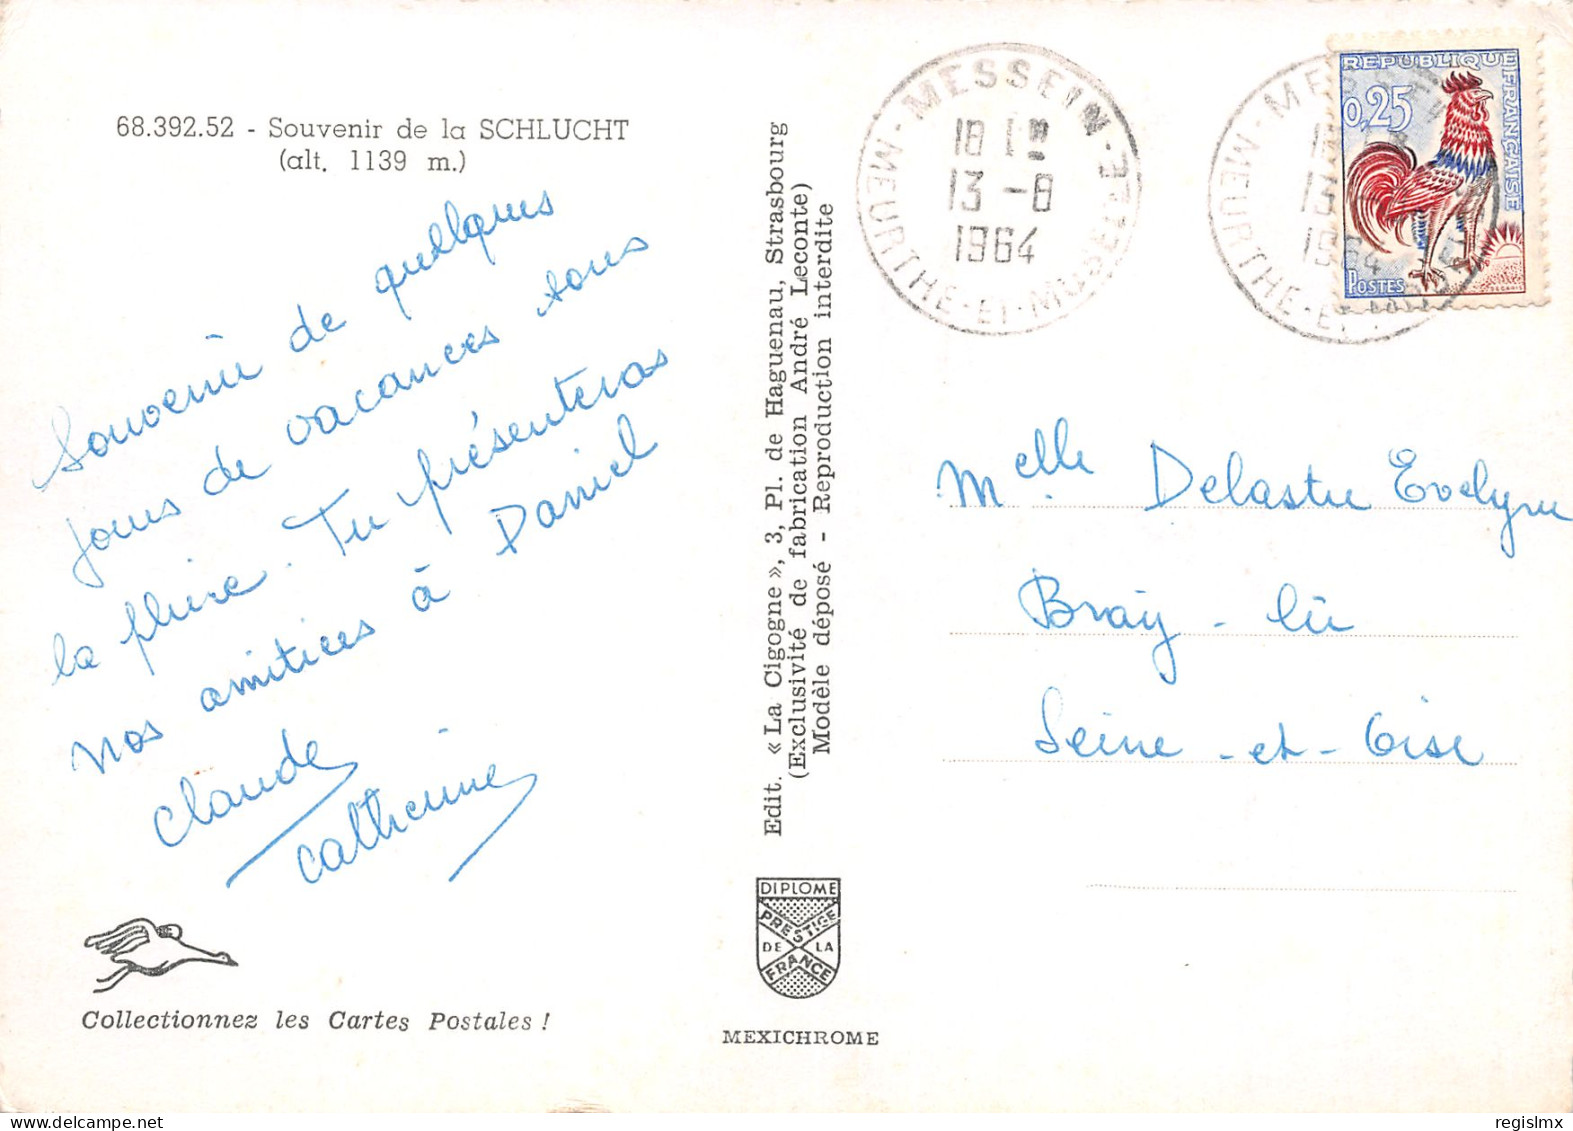 68.392.52 - Souvenir de la SCHLUCHT
(alt. 1139 m.)
Souvenir de quelques
jours de vacances sous
la pluie. Tu présenteras
nos amitiées à Daniel
Claude
Catherine
Collectionnez les Cartes Postales !
Edit. « La Cigogne », 3, Pl. de Haguenau, Strasbourg
(Exclusivité de fabrication André Leconte)
Modèle déposé - Reproduction interdite
DIPLOME
PRESTIGE
DE LA
FRANCE
MEXICHROME
MESSEIN
18 H
13 -8
1964
MEURTHE-ET-MOSELLE
REPUBLIQUE FRANÇAISE
0,25
POSTES
DECARIS
13
1964
MEURTHE-ET
Melle Delastre Evelyne
Bray - Lû
Seine - et - Oise
regislmx